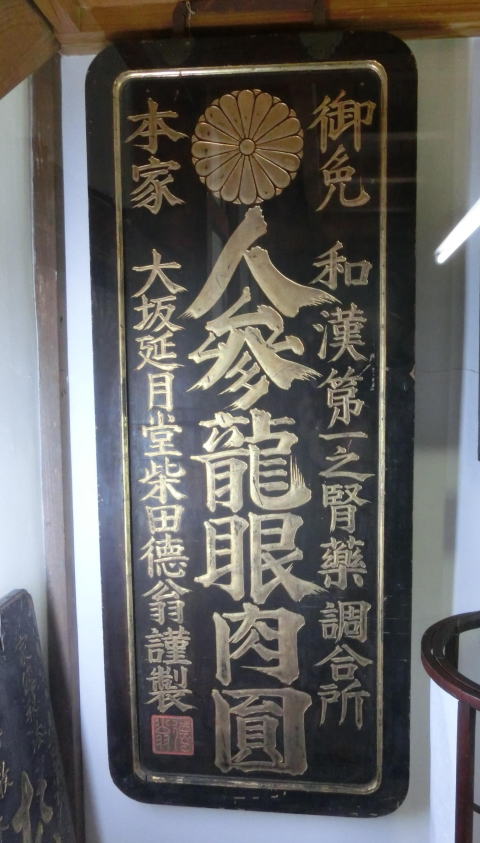 御免 和漢第一之腎藥調合所
人參龍眼肉圓
本家 大坂延月堂柴田德翁謹製